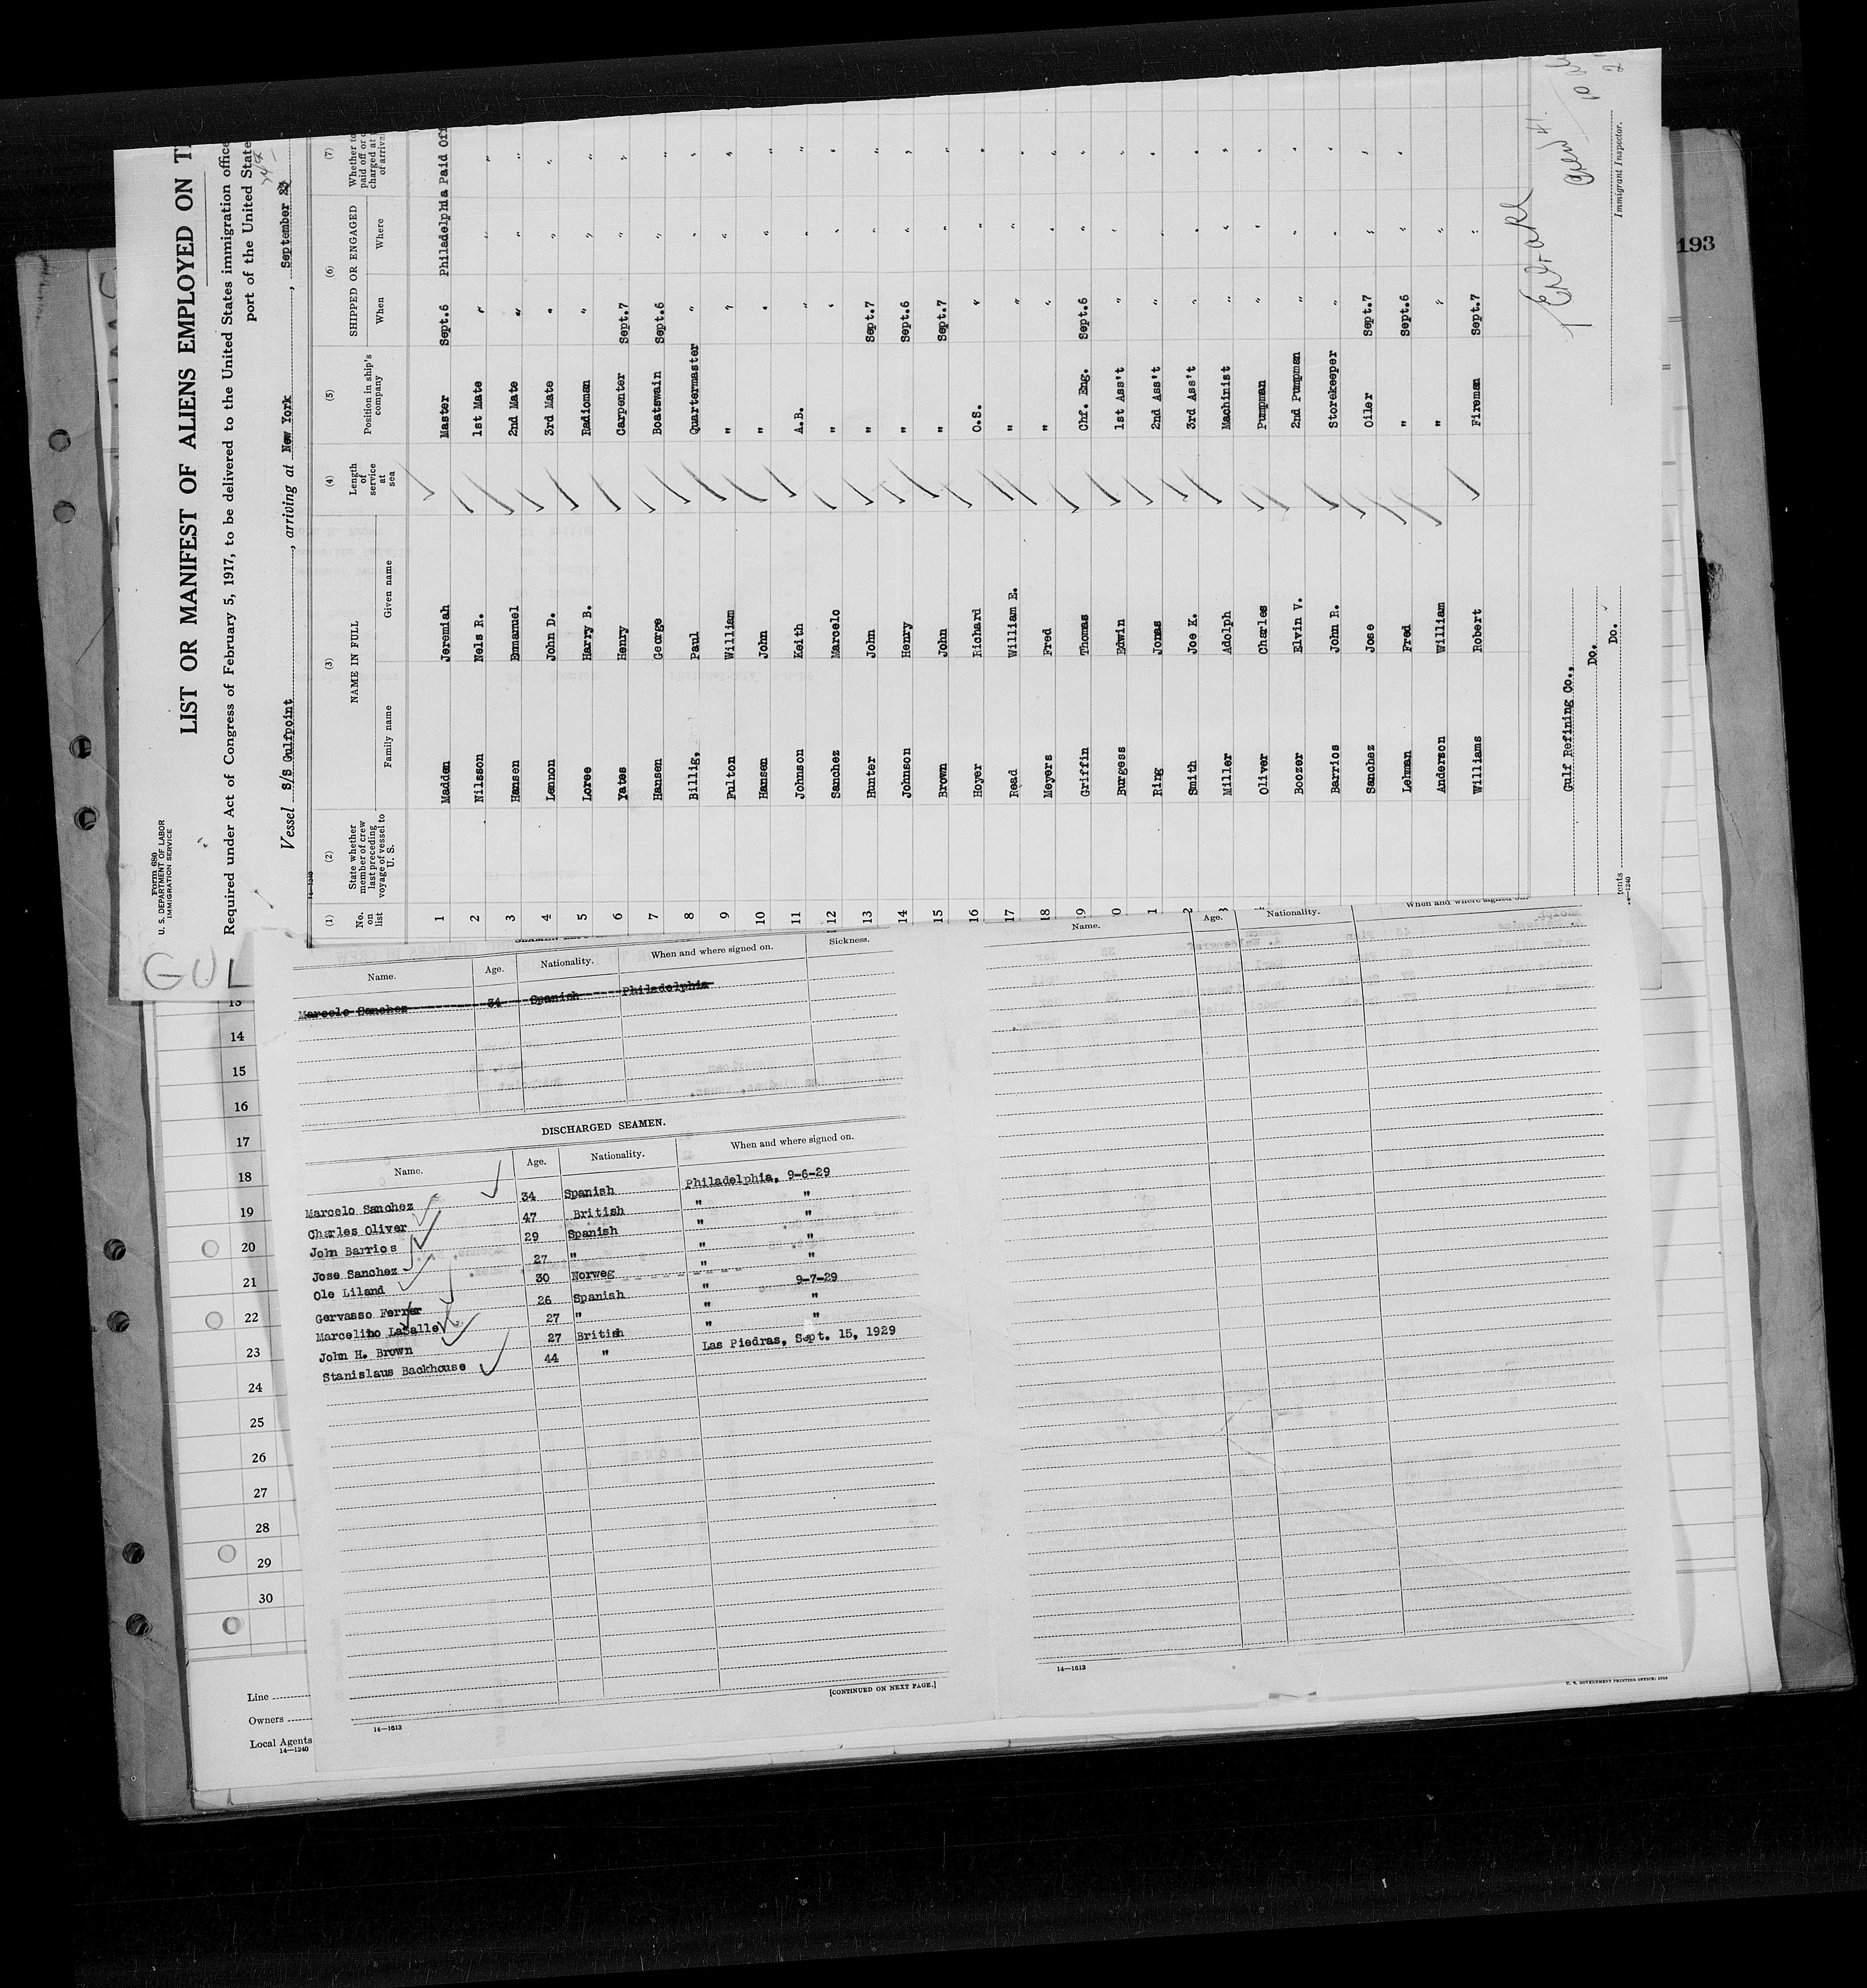 Form 680
U. S. DEPARTMENT OF LABOR
IMMIGRATION SERVICE
LIST OR MANIFEST OF ALIENS EMPLOYED ON
Required under Act of Congress of February 5, 1917, to be delivered to the United States immigration office
port of the United State
Vessel S/S Gulfpoint, arriving at New York, September
14-1240
(1) (2) (3) (4) (5) (6) (7)
No. on list
State whether member of crew last preceding voyage of vessel to U. S.
NAME IN FULL
Family name Given name
Length of service at sea
Position in ship's company
SHIPPED OR ENGAGED
When Where
Whether to paid off or charged at of arrival
1 Madden Jeremiah Master Sept.6 Philadelphia Paid Off
2 Nilsson Nels R. 1st Mate " " "
3 Hansen Emmanuel 2nd Mate " " "
4 Lennon John D. 3rd Mate " " "
5 Loree Harry B. Radioman " " "
6 Yates Henry Carpenter Sept.7 " "
7 Hansen George Boatswain Sept.6 " "
8 Billig, Paul Quartermaster " " "
9 Fulton William " " " "
10 Hansen John " " " "
11 Johnson Keith A.B. " " "
12 Sanchez Marcelo " " " "
13 Hunter John " Sept.7 " "
14 Johnson Henry " Sept.6 " "
15 Brown John " Sept.7 " "
16 Hoyer Richard O.S. " " "
17 Read William E. " " " "
18 Meyers Fred " " " "
9 Griffin Thomas Chf. Eng. Sept.6 " "
0 Burgess Edwin 1st Ass't " " "
1 Ring Jonas 2nd Ass't " " "
2 Smith Joe K. 3rd Ass't " " "
Miller Adolph Machinist " " "
Oliver Charles Pumpman " " "
Boozer Elvin V. 2nd Pumpman " " "
Barrios John R. Storekeeper " " "
Sanchez Jose Oiler Sept.7 " "
Lehman Fred " Sept.6 " "
Anderson William " " "
Williams Robert Fireman Sept.7 "
Gulf Refining Co.,
Do.
Do.
ents
14-1240
Immigrant Inspector.
193
GUL
Name. Age. Nationality. When and where signed on. Sickness.
Marcelo Sanchez 34 Spanish Philadelphia
DISCHARGED SEAMEN.
Name. Age. Nationality. When and where signed on.
Marcelo Sanchez 34 Spanish Philadelphia, 9-6-29
Charles Oliver 47 British " "
John Barrios 29 Spanish " "
Jose Sanchez 27 " " "
Ole Liland 30 Norweg " "
Gervasso Ferrer 26 Spanish " 9-7-29
Marcelino LaSalle 27 " " "
John H. Brown 27 British " "
Stanislaus Backhouse 44 " Las Piedras, Sept. 15, 1929
[CONTINUED ON NEXT PAGE.]
14-1613
Name. Age. Nationality. When and where signed on.
14-1613
U. S. GOVERNMENT PRINTING OFFICE:
13
14
15
16
17
18
19
20
21
22
23
24
25
26
27
28
29
30
Line
Owners
Local Agents
14-1240